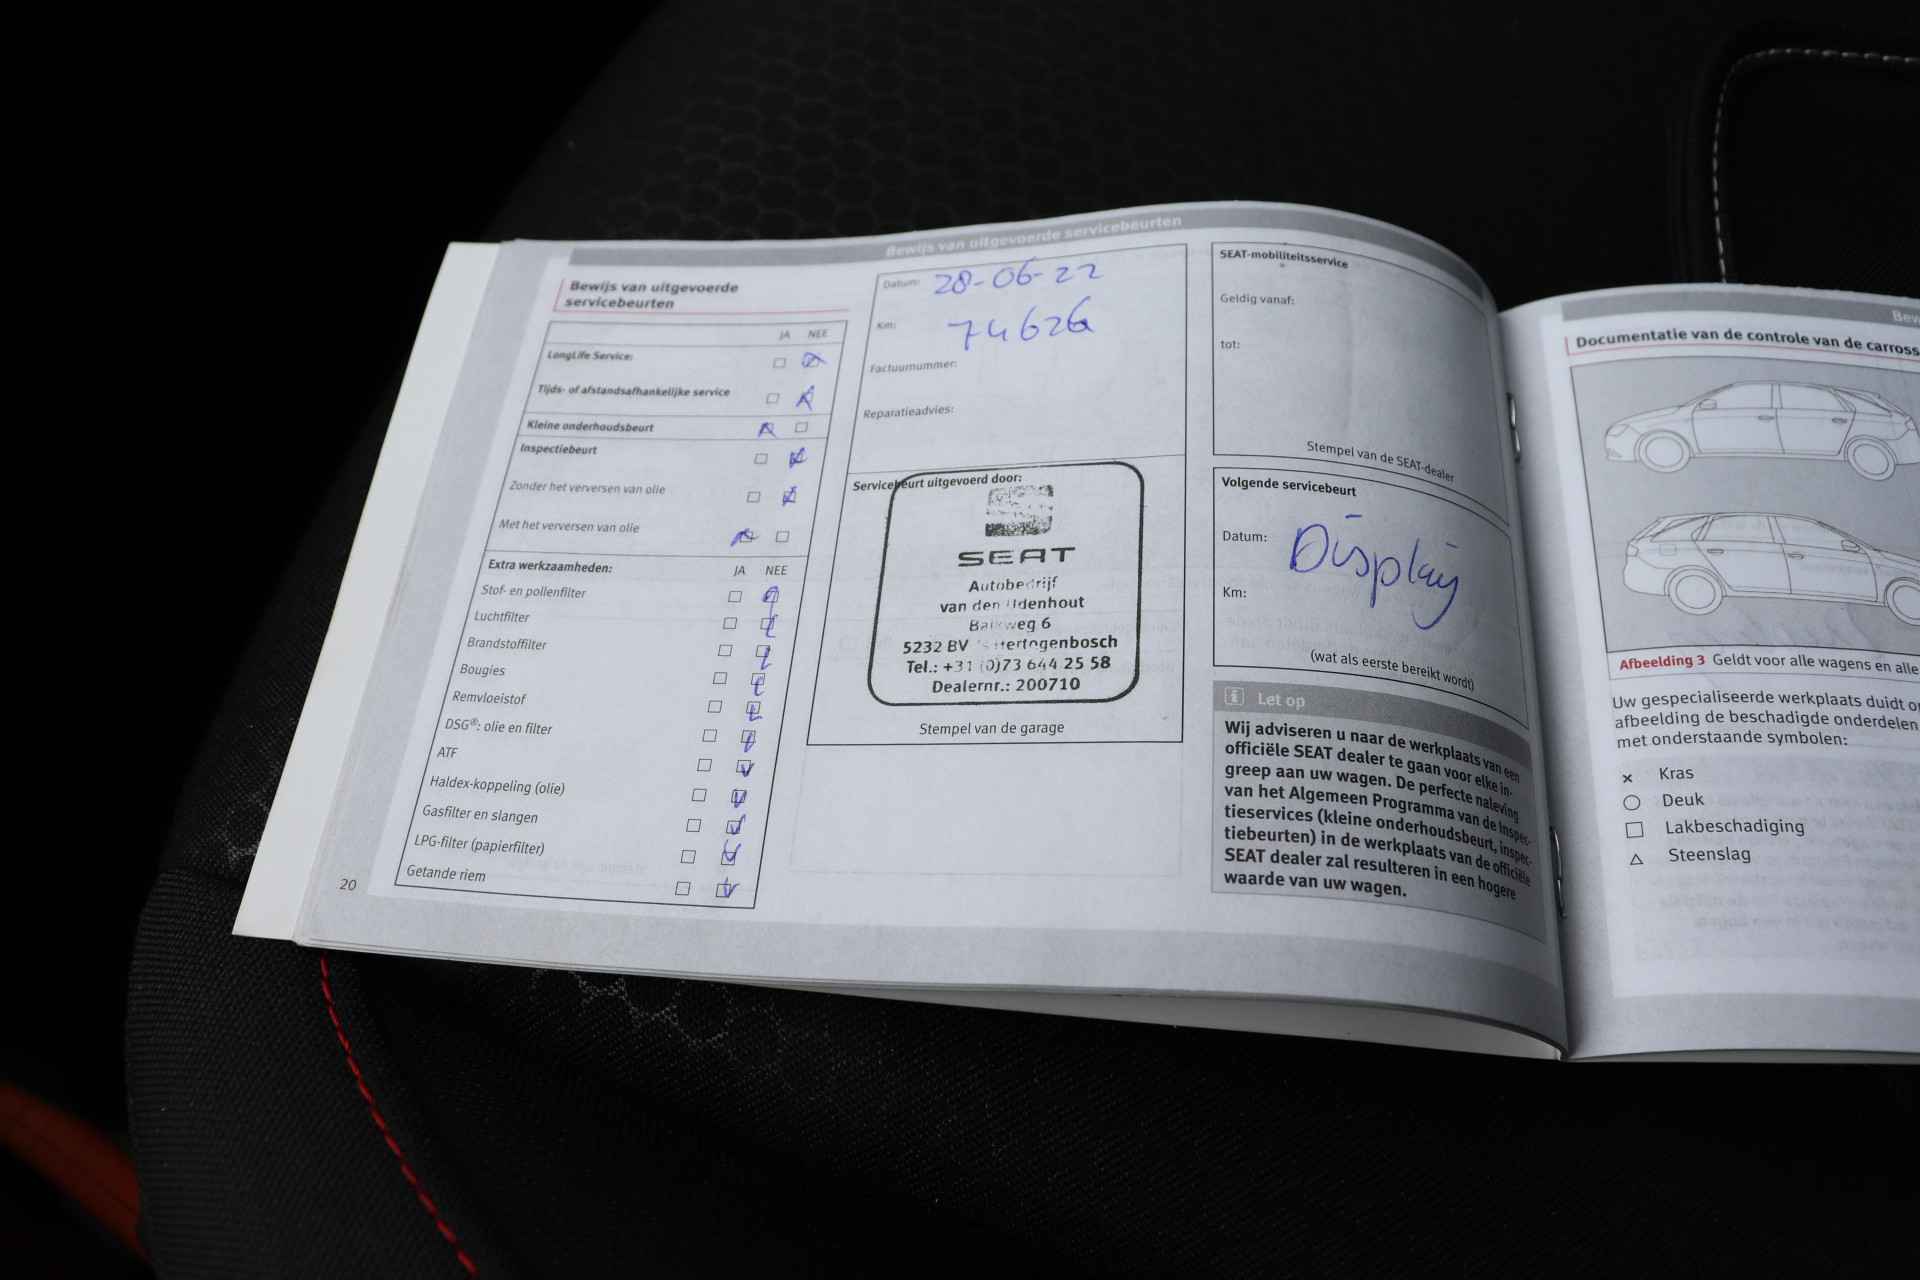 Bewijs van uitgevoerde servicebeurten
Bewijs van uitgevoerde
servicebeurten
JA NEE
LongLife Service:
Tijds- of afstandsafhankelijke service
Kleine onderhoudsbeurt
Inspectiebeurt
Zonder het verversen van olie
Met het verversen van olie
Extra werkzaamheden: JA NEE
Stof- en pollenfilter
Luchtfilter
Brandstoffilter
Bougies
Remvloeistof
DSG®: olie en filter
ATF
Haldex-koppeling (olie)
Gasfilter en slangen
LPG-filter (papierfilter)
Getande riem
20
Datum: 28-06-22
Km: 74626
Factuurnummer:
Reparatieadvies:
Servicebeurt uitgevoerd door:
SEAT
Autobedrijf
van den Udenhout
Balkweg 6
5232 BV 's Hertogenbosch
Tel.: +31 (0)73 644 25 58
Dealernr.: 200710
Stempel van de garage
SEAT-mobiliteitsservice
Geldig vanaf:
tot:
Stempel van de SEAT-dealer
Volgende servicebeurt
Datum: Display
Km:
(wat als eerste bereikt wordt)
Let op
Wij adviseren u naar de werkplaats van een
officiële SEAT dealer te gaan voor elke in-
greep aan uw wagen. De perfecte naleving
van het Algemeen Programma van de Inspec-
tieservices (kleine onderhoudsbeurt, inspec-
tiebeurten) in de werkplaats van de officiële
SEAT dealer zal resulteren in een hogere
waarde van uw wagen.
Bew
Documentatie van de controle van de carross
Afbeelding 3 Geldt voor alle wagens en alle
Uw gespecialiseerde werkplaats duidt o
afbeelding de beschadigde onderdelen
met onderstaande symbolen:
× Kras
○ Deuk
□ Lakbeschadiging
△ Steenslag